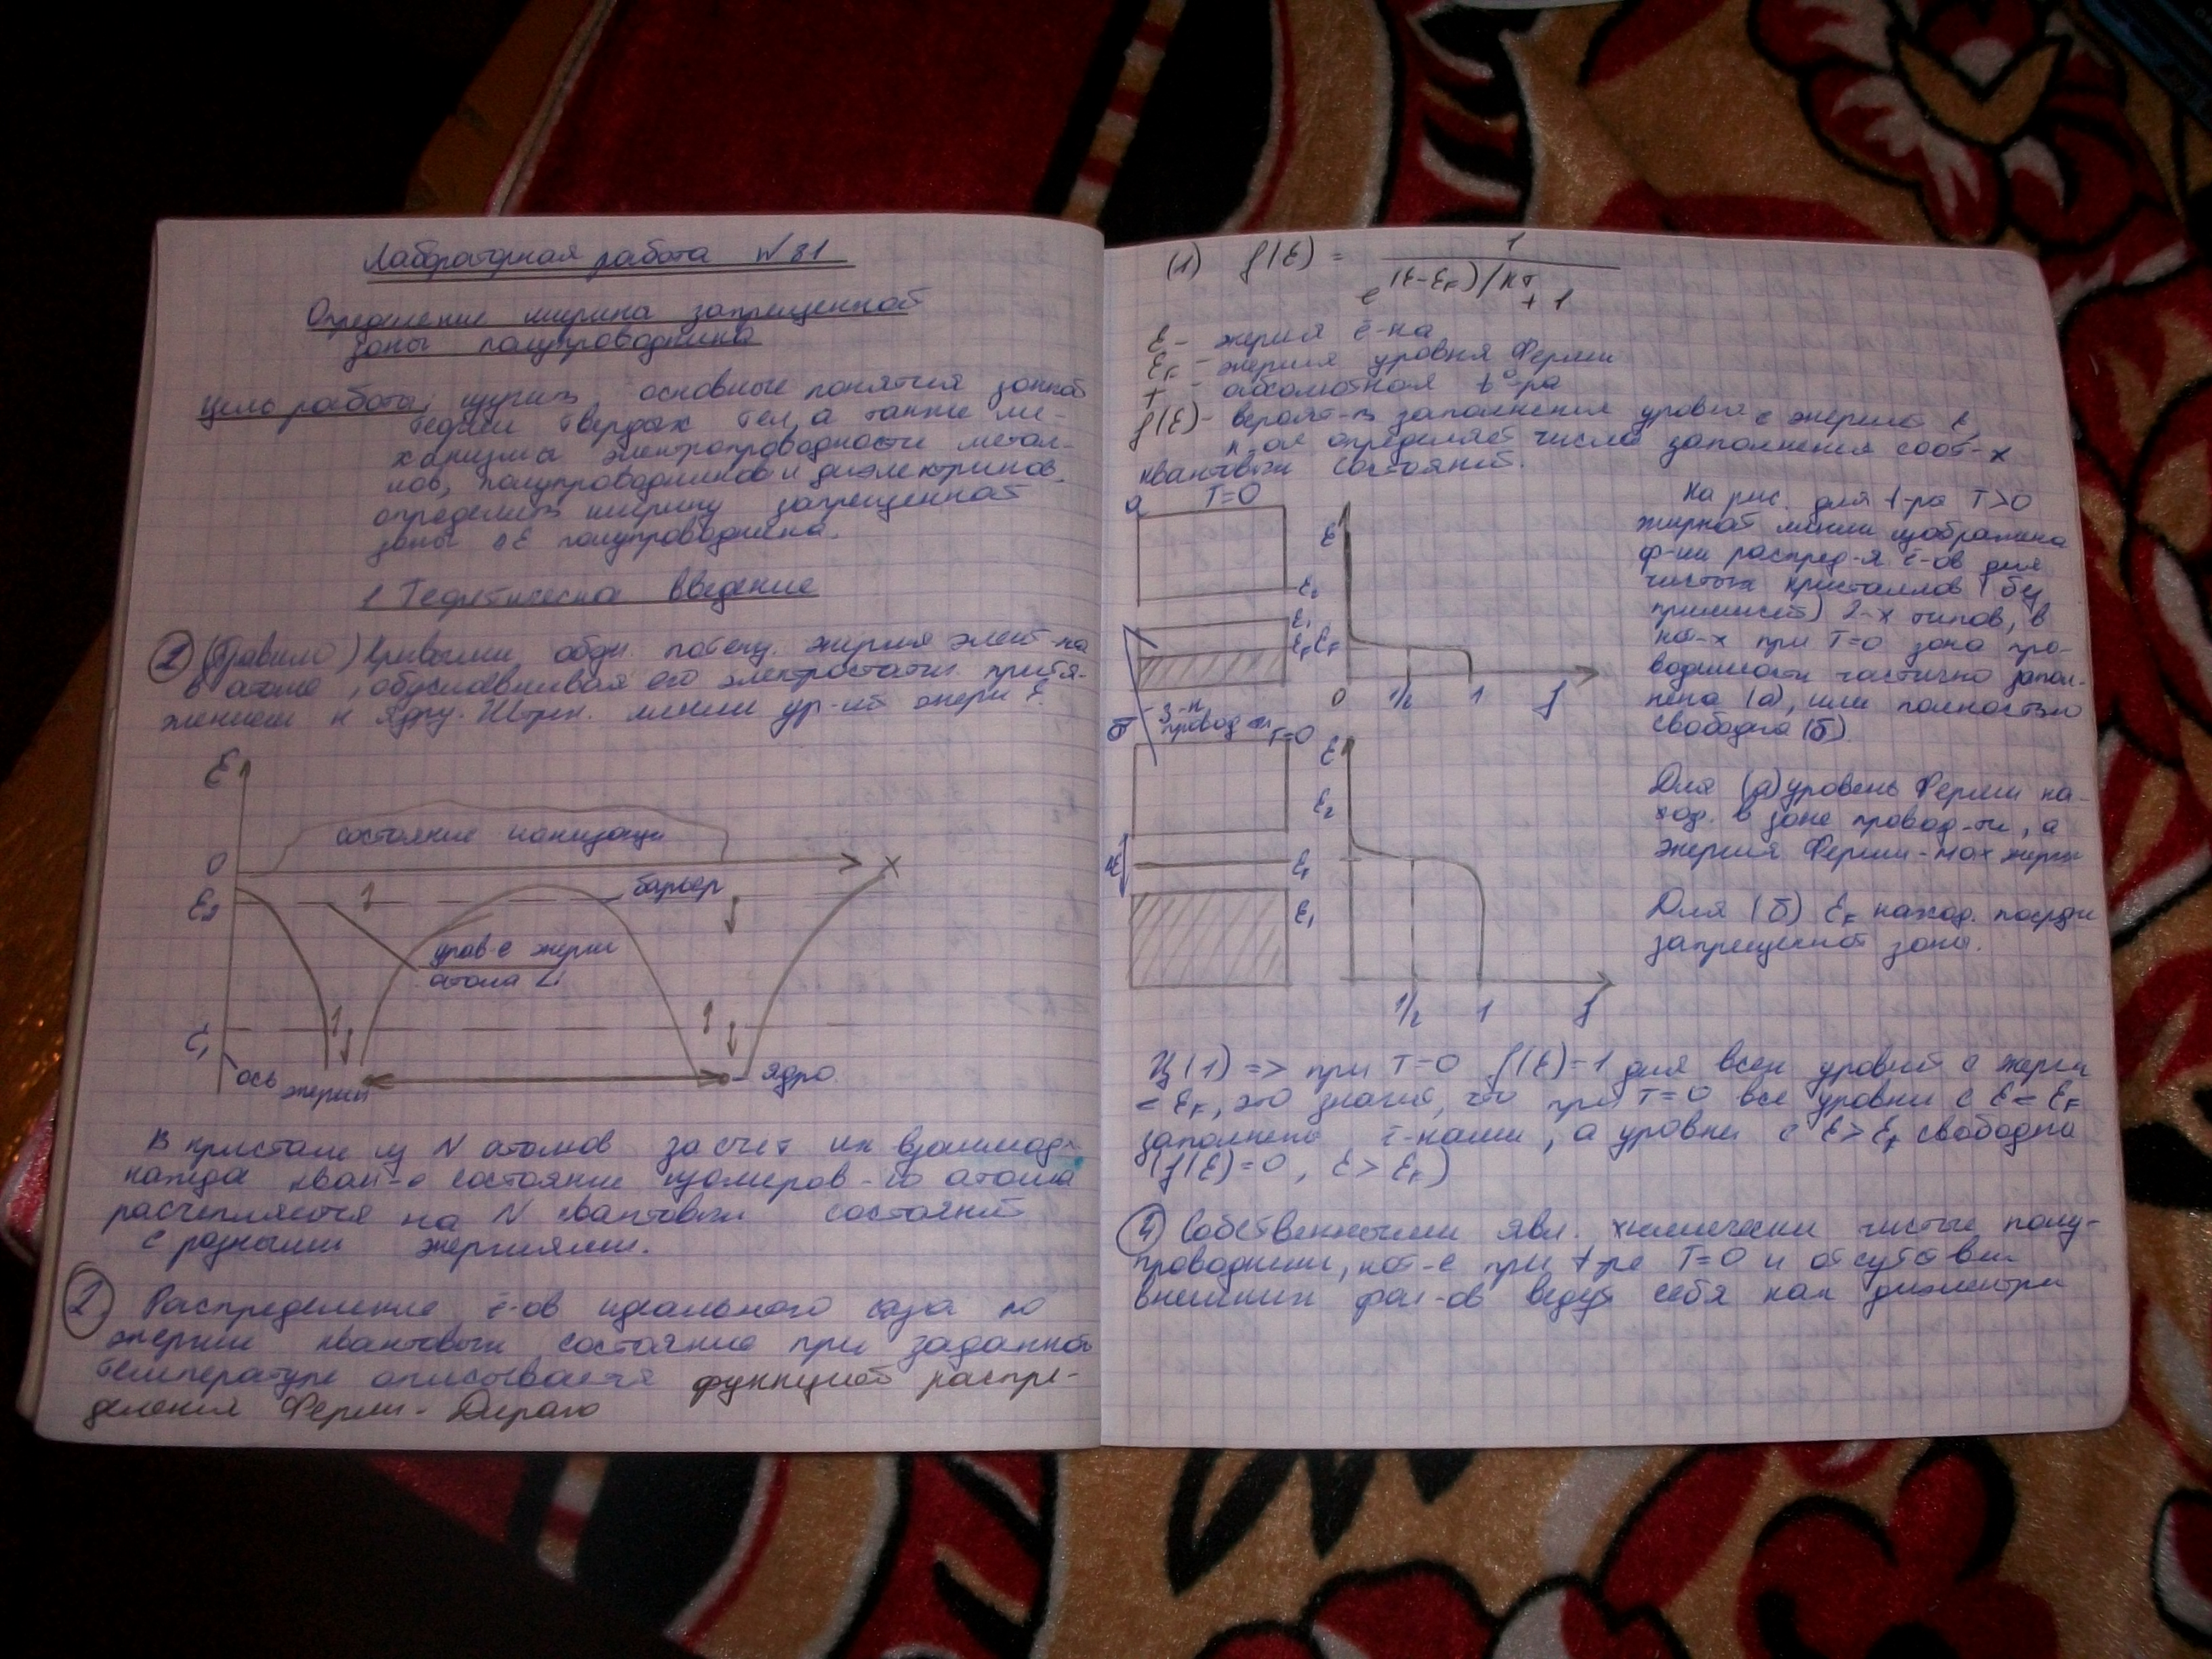 Лабораторная работа №81
Определение ширина запрещенной
зоны полупроводника
Цель работы: изучить основные понятия зонной
теории твердых тел, а также ме-
ханизма электропроводности метал-
лов, полупроводников и диэлектриков.
определить ширину запрещенной
зоны полупроводника.
1 Теоретическа введение
(Правило) Кривыми потенц. энергия элект-на
в атоме, его электростатич. притя-
жением к ядру. Штрих. линии энерги E.
E
состояние ионизаци
0
X
E2
барьер
уров-е энерги
атома Li
E1
ось энергии
ядро
В кристале из N атомов за счет их взаимод.
состояние изолиров-го атома
расчепляется на N квантовых состояний
с разными энергиями.
2 Распределение ē-ов идеального газа по
энергии квантовым состояние при заданной
температуре описывается функцией распре-
деления Ферми-Дирака
(1) f(E) = 1
e (E-EF)/kT + 1
E - энергия ē-на
EF - энергия уровня Ферми
T - абсолютная t°-ра
f(E) - вероят-ть заполнения уровня с энергией E,
определяет числа заполнения соот-х
квантовых состояний.
а T=0
E
E2
E1
EF EF
0 1/2 1 f
На рис. для t-ра T>0
жирной линии изображена
ф-ии распред-я ē-ов для
чистых кристаллов (без
примисей) 2-х типов, в
кот-х при T=0 зона про-
водимости частично запол-
нена (а), или полностью
свободна (б).
б з-н
провод-ти
T=0
E
E2
ΔE
EF
E1
1/2 1 f
Для (а) уровень Ферми на-
ход. в зоне провод-ти, а
энергия Ферми - max энерги
Для (б) EF наход. посреди
запрещенной зоны.
Из (1) => при T=0 f(E)=1 для всех уровней с энерги
< EF, это значит, что при T=0 все уровни с E < EF
заполнены ē-нами, а уровни с E > EF свободны
(f(E)=0, E > EF)
4 Собственными явл. химически чистые полу-
проводники, кот-е при t-ре T=0 и отсутствии
внешних фак-ов ведут себя как диэлектри